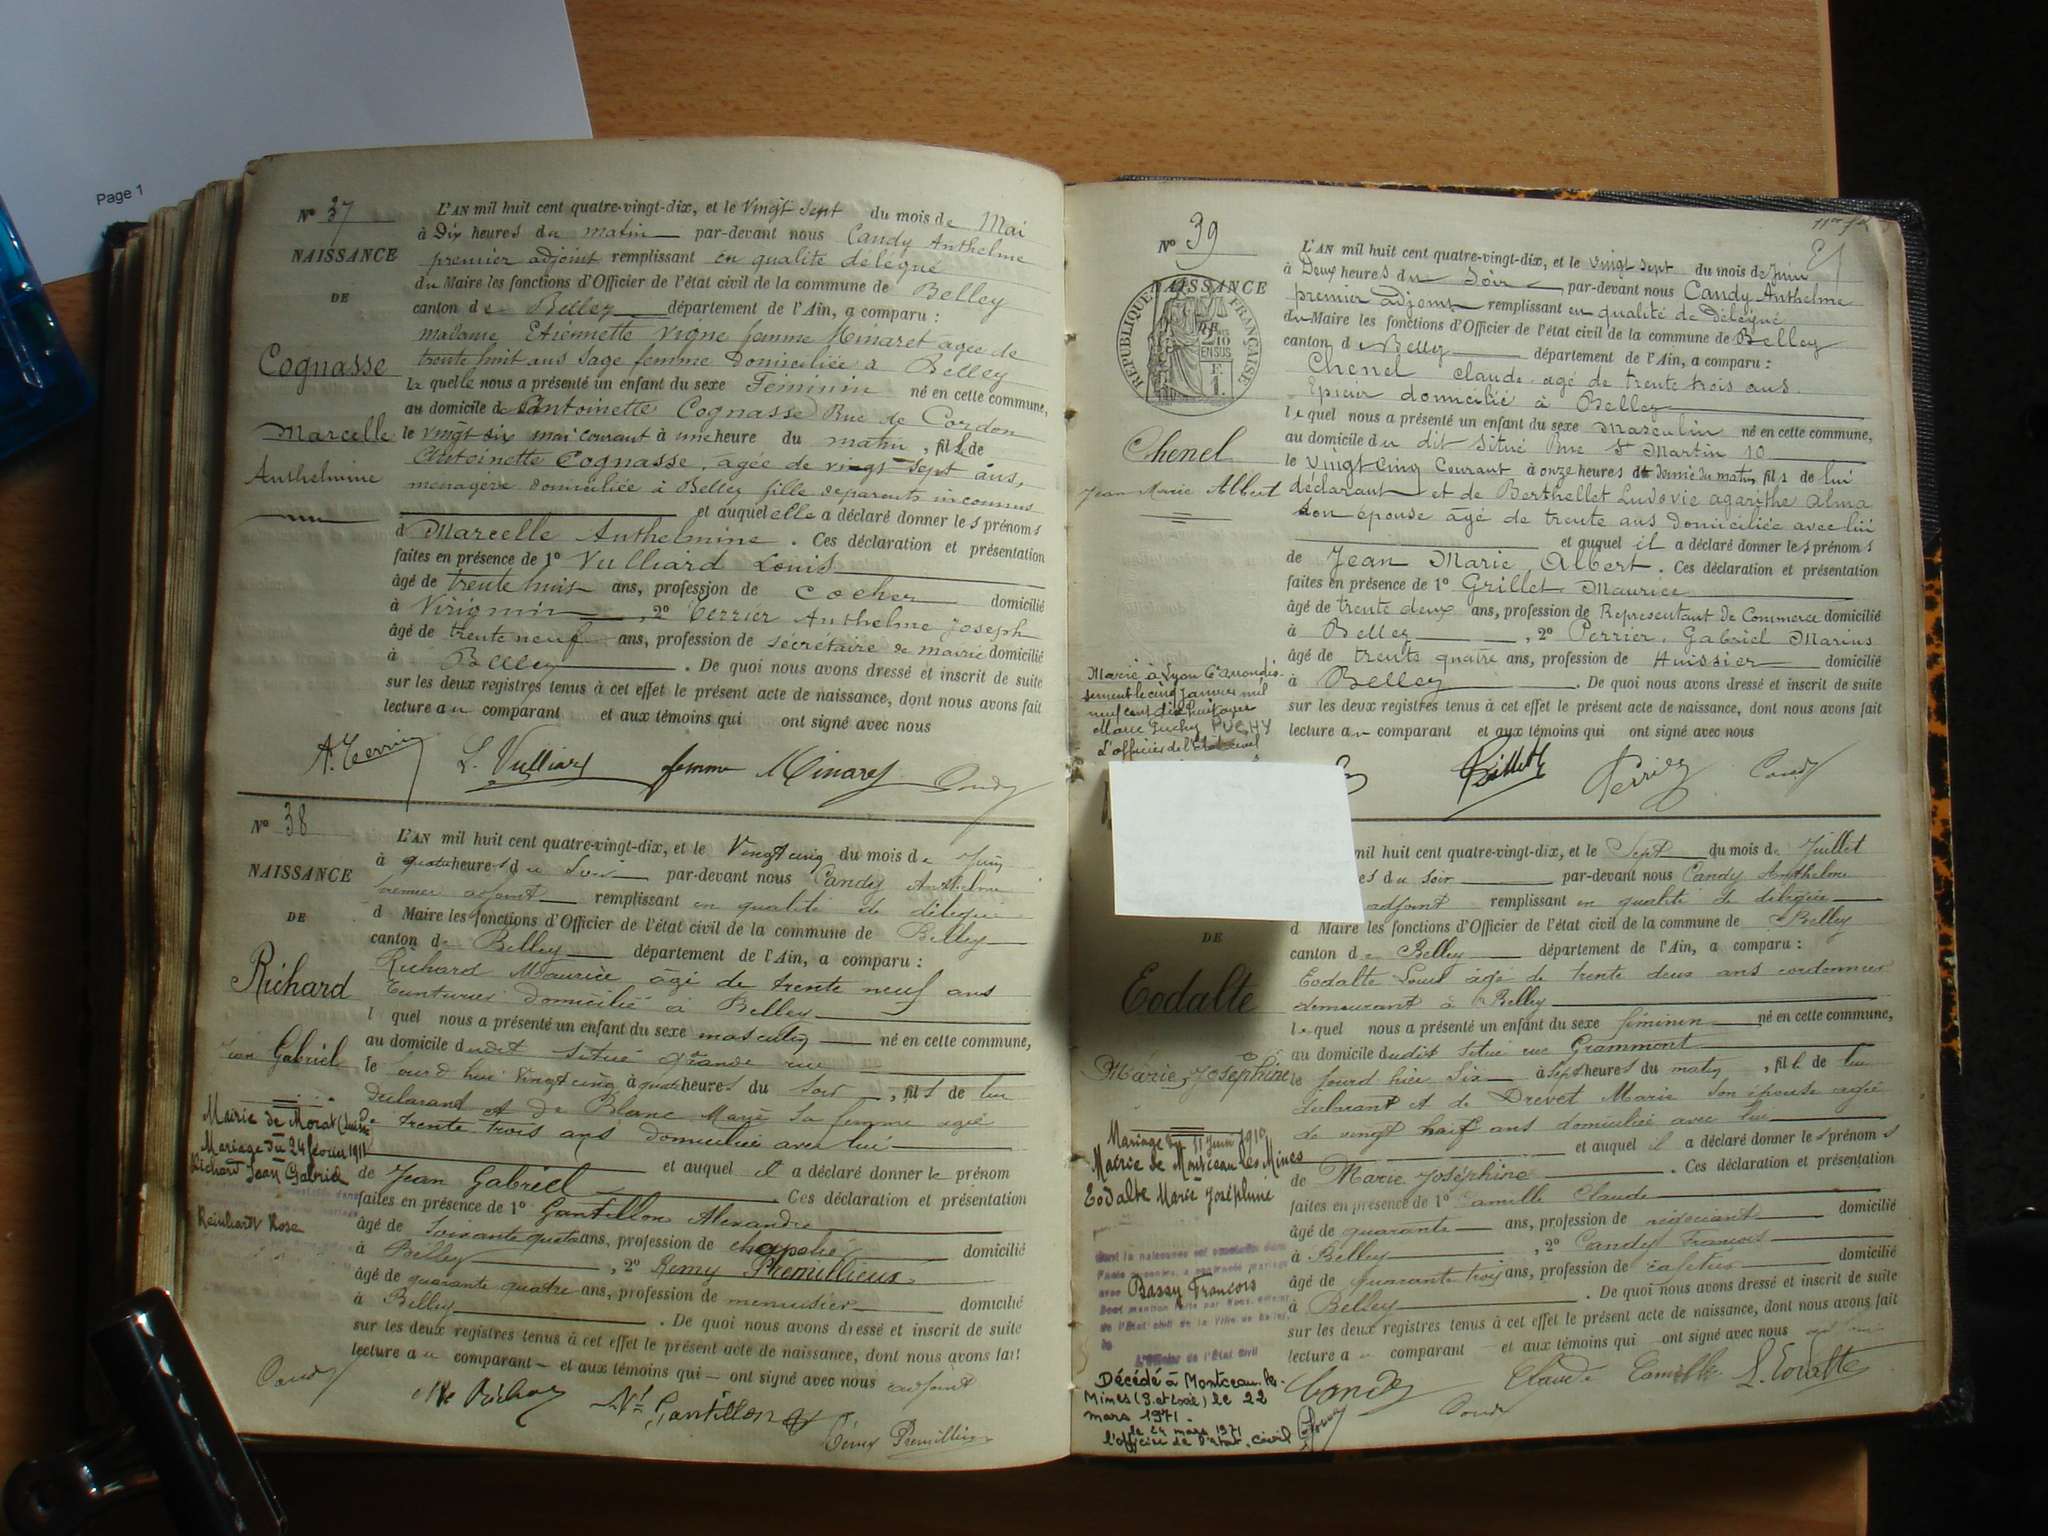 Page 1
Nº 37
NAISSANCE
DE
Cognasse
Marcelle
Anthelmine
L'AN mil huit cent quatre-vingt-dix, et le vingt sept du mois de Mai
à Dix heures du matin par-devant nous Candy Anthelme
premier adjoint remplissant en qualité délégué
du Maire les fonctions d'Officier de l'état civil de la commune de Belley
canton de Belley département de l'Ain, a comparu :
madame Etiennette Vigne femme Minaret agée de
trente huit ans sage femme domiciliée à Belley
laquelle nous a présenté un enfant du sexe Féminin né en cette commune,
au domicile de Antoinette Cognasse Rue de Cordon
le vingt six mai courant à une heure du matin, fille de
Antoinette Cognasse, agée de vingt-sept ans,
menagère domiciliée à Belley fille de parents inconnus
et auquel elle a déclaré donner les prénoms
d Marcelle Anthelmine. Ces déclaration et présentation
faites en présence de 1º Vulliard Louis
âgé de trente huit ans, profession de cocher domicilié
à Virignin, 2º Terrier Anthelme Joseph
âgé de trente neuf ans, profession de sécrétaire de mairie domicilié
à Belley. De quoi nous avons dressé et inscrit de suite
sur les deux registres tenus à cet effet le présent acte de naissance, dont nous avons fait
lecture au comparant et aux témoins qui ont signé avec nous
A. Terrier L. Vulliard femme Minaret Candy
Nº 38
NAISSANCE
DE
Richard
Jean Gabriel
L'AN mil huit cent quatre-vingt-dix, et le Vingt cinq du mois de Juin
à quatre heures du Soir par-devant nous Candy Anthelme
premier adjoint remplissant en qualité de délégué
d Maire les fonctions d'Officier de l'état civil de la commune de Belley
canton de Belley département de l'Ain, a comparu :
Richard Maurice âgé de trente neuf ans
Teinturier domicilié à Belley
l quel nous a présenté un enfant du sexe masculin né en cette commune,
au domicile dudit situé grande rue
le jourd'hui vingt cinq à quatre heures du soir, fils de lui
déclarant et de Blanc Marie sa femme agé
de trente trois ans domicilié avec lui
et auquel il a déclaré donner le prénom
de Jean Gabriel. Ces déclaration et présentation
faites en présence de 1º Gantillon Alexandre
âgé de soixante quatre ans, profession de chapelier domicilié
à Belley, 2º Remy Premillieux
âgé de quarante quatre ans, profession de menuisier domicilié
à Belley. De quoi nous avons dressé et inscrit de suite
sur les deux registres tenus à cet effet le présent acte de naissance, dont nous avons fait
lecture au comparant et aux témoins qui ont signé avec nous adjoint
Mairie de Morat (Suisse
Mariage du 24 février 1911
Richard Jean Gabriel
Reinhardt Rose
Candy Mce Richard Gantillon Rémy Premillieux
Nº 39
NAISSANCE
RÉPUBLIQUE FRANÇAISE
2/10 EN SUS
F. 1.
Chenel
Jean Marie Albert
L'AN mil huit cent quatre-vingt-dix, et le vingt sept du mois de Juin
à Deux heures du Soir par-devant nous Candy Anthelme
premier adjoint remplissant en qualité de Délégué
du Maire les fonctions d'Officier de l'état civil de la commune de Belley
canton de Belley département de l'Ain, a comparu :
Chenel claude agé de trente trois ans
Epicier domicilié à Belley
lequel nous a présenté un enfant du sexe Masculin né en cette commune,
au domicile du dit situé Rue St Martin 10
le vingt cinq courant à onze heures et demie du matin, fils de lui
déclarant et de Berthellet Ludovie agarithe alma
son épouse âgé de trente ans domiciliée avec lui
et auquel il a déclaré donner les prénoms
de Jean Marie Albert. Ces déclaration et présentation
faites en présence de 1º Grillet Maurice
âgé de trente deux ans, profession de Représentant de Commerce domicilié
à Belley, 2º Perrier, Gabriel Marius
âgé de trente quatre ans, profession de Huissier domicilié
à Belley. De quoi nous avons dressé et inscrit de suite
sur les deux registres tenus à cet effet le présent acte de naissance, dont nous avons fait
lecture au comparant et aux témoins qui ont signé avec nous
Marié à Lyon 6e arrondis-
sement le cinq Janvier mil
neuf cent dix huit avec
Marie Puchy PUCHY
L'officier de l'Etat civil
Grillet Perrier Candy
DE
Eodalte
Marie, Joséphine
mil huit cent quatre-vingt-dix, et le Sept du mois de Juillet
es du soir par-devant nous Candy Anthelme
adjoint remplissant en qualité de délégué
d Maire les fonctions d'Officier de l'état civil de la commune de Belley
canton de Belley département de l'Ain, a comparu :
Eodalte Louis âgé de trente deux ans cordonnier
demeurant à Belley
lequel nous a présenté un enfant du sexe féminin né en cette commune,
au domicile dudit situé rue Grammont
le jourd'hier six à sept heures du matin, fille de lui
déclarant et de Drevet Marie son épouse agée
de vingt huit ans domicilié avec lui
et auquel il a déclaré donner les prénoms
de Marie Joséphine. Ces déclaration et présentation
faites en présence de 1º Camille Claude
âgé de quarante ans, profession de négociant domicilié
à Belley, 2º Candy François
âgé de quarante trois ans, profession de cafetier domicilié
à Belley. De quoi nous avons dressé et inscrit de suite
sur les deux registres tenus à cet effet le présent acte de naissance, dont nous avons fait
lecture au comparant et aux témoins qui ont signé avec nous
Mariage du 11 Juin 1910
Mairie de Montceau les Mines
Eodalte Marie Joséphine
dont la naissance est constatée dans
l'acte ci-contre, a contracté mariage
avec Bassy François
Dont mention faite par Nous, officier
de l'État civil de la Ville de Belley,
le
L'Officier de l'État Civil
Décédé à Montceau-les-
Mines (S. et Loire) le 22
mars 1971.
le 24 mars 1971
l'officier de l'état-civil
Candy Claude Camille L. Eodalte
Candy